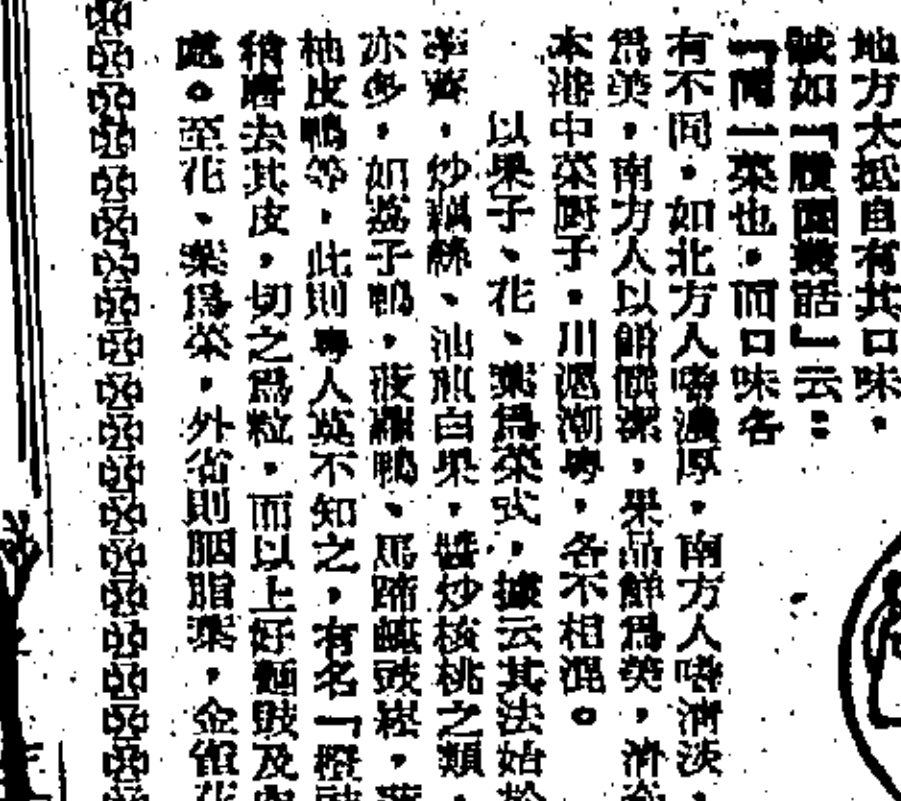 地方大抵自有其口味，
誠如「履園叢話」云：
「同一菜也，而口味各
有不同，如北方人嗜濃厚，南方人嗜清淡，
爲美，南方人以餚饌潔，果品鮮爲美，清
本港中菜厨子，川滬潮粵，各不相混。
以果子、花、葉爲菜式，據云其法始於
荸薺，炒藕絲、油煎白果，醬炒核桃之類，
亦多，如荔子鴨，菠蘿鴨、馬蹄豉
柚皮鴨等，此則粵人莫不知之，有名「橙
稍磨去其皮，切之爲粒，而以上好麵豉及
處。至花、葉爲菜，外省則胭脂葉，金雀花